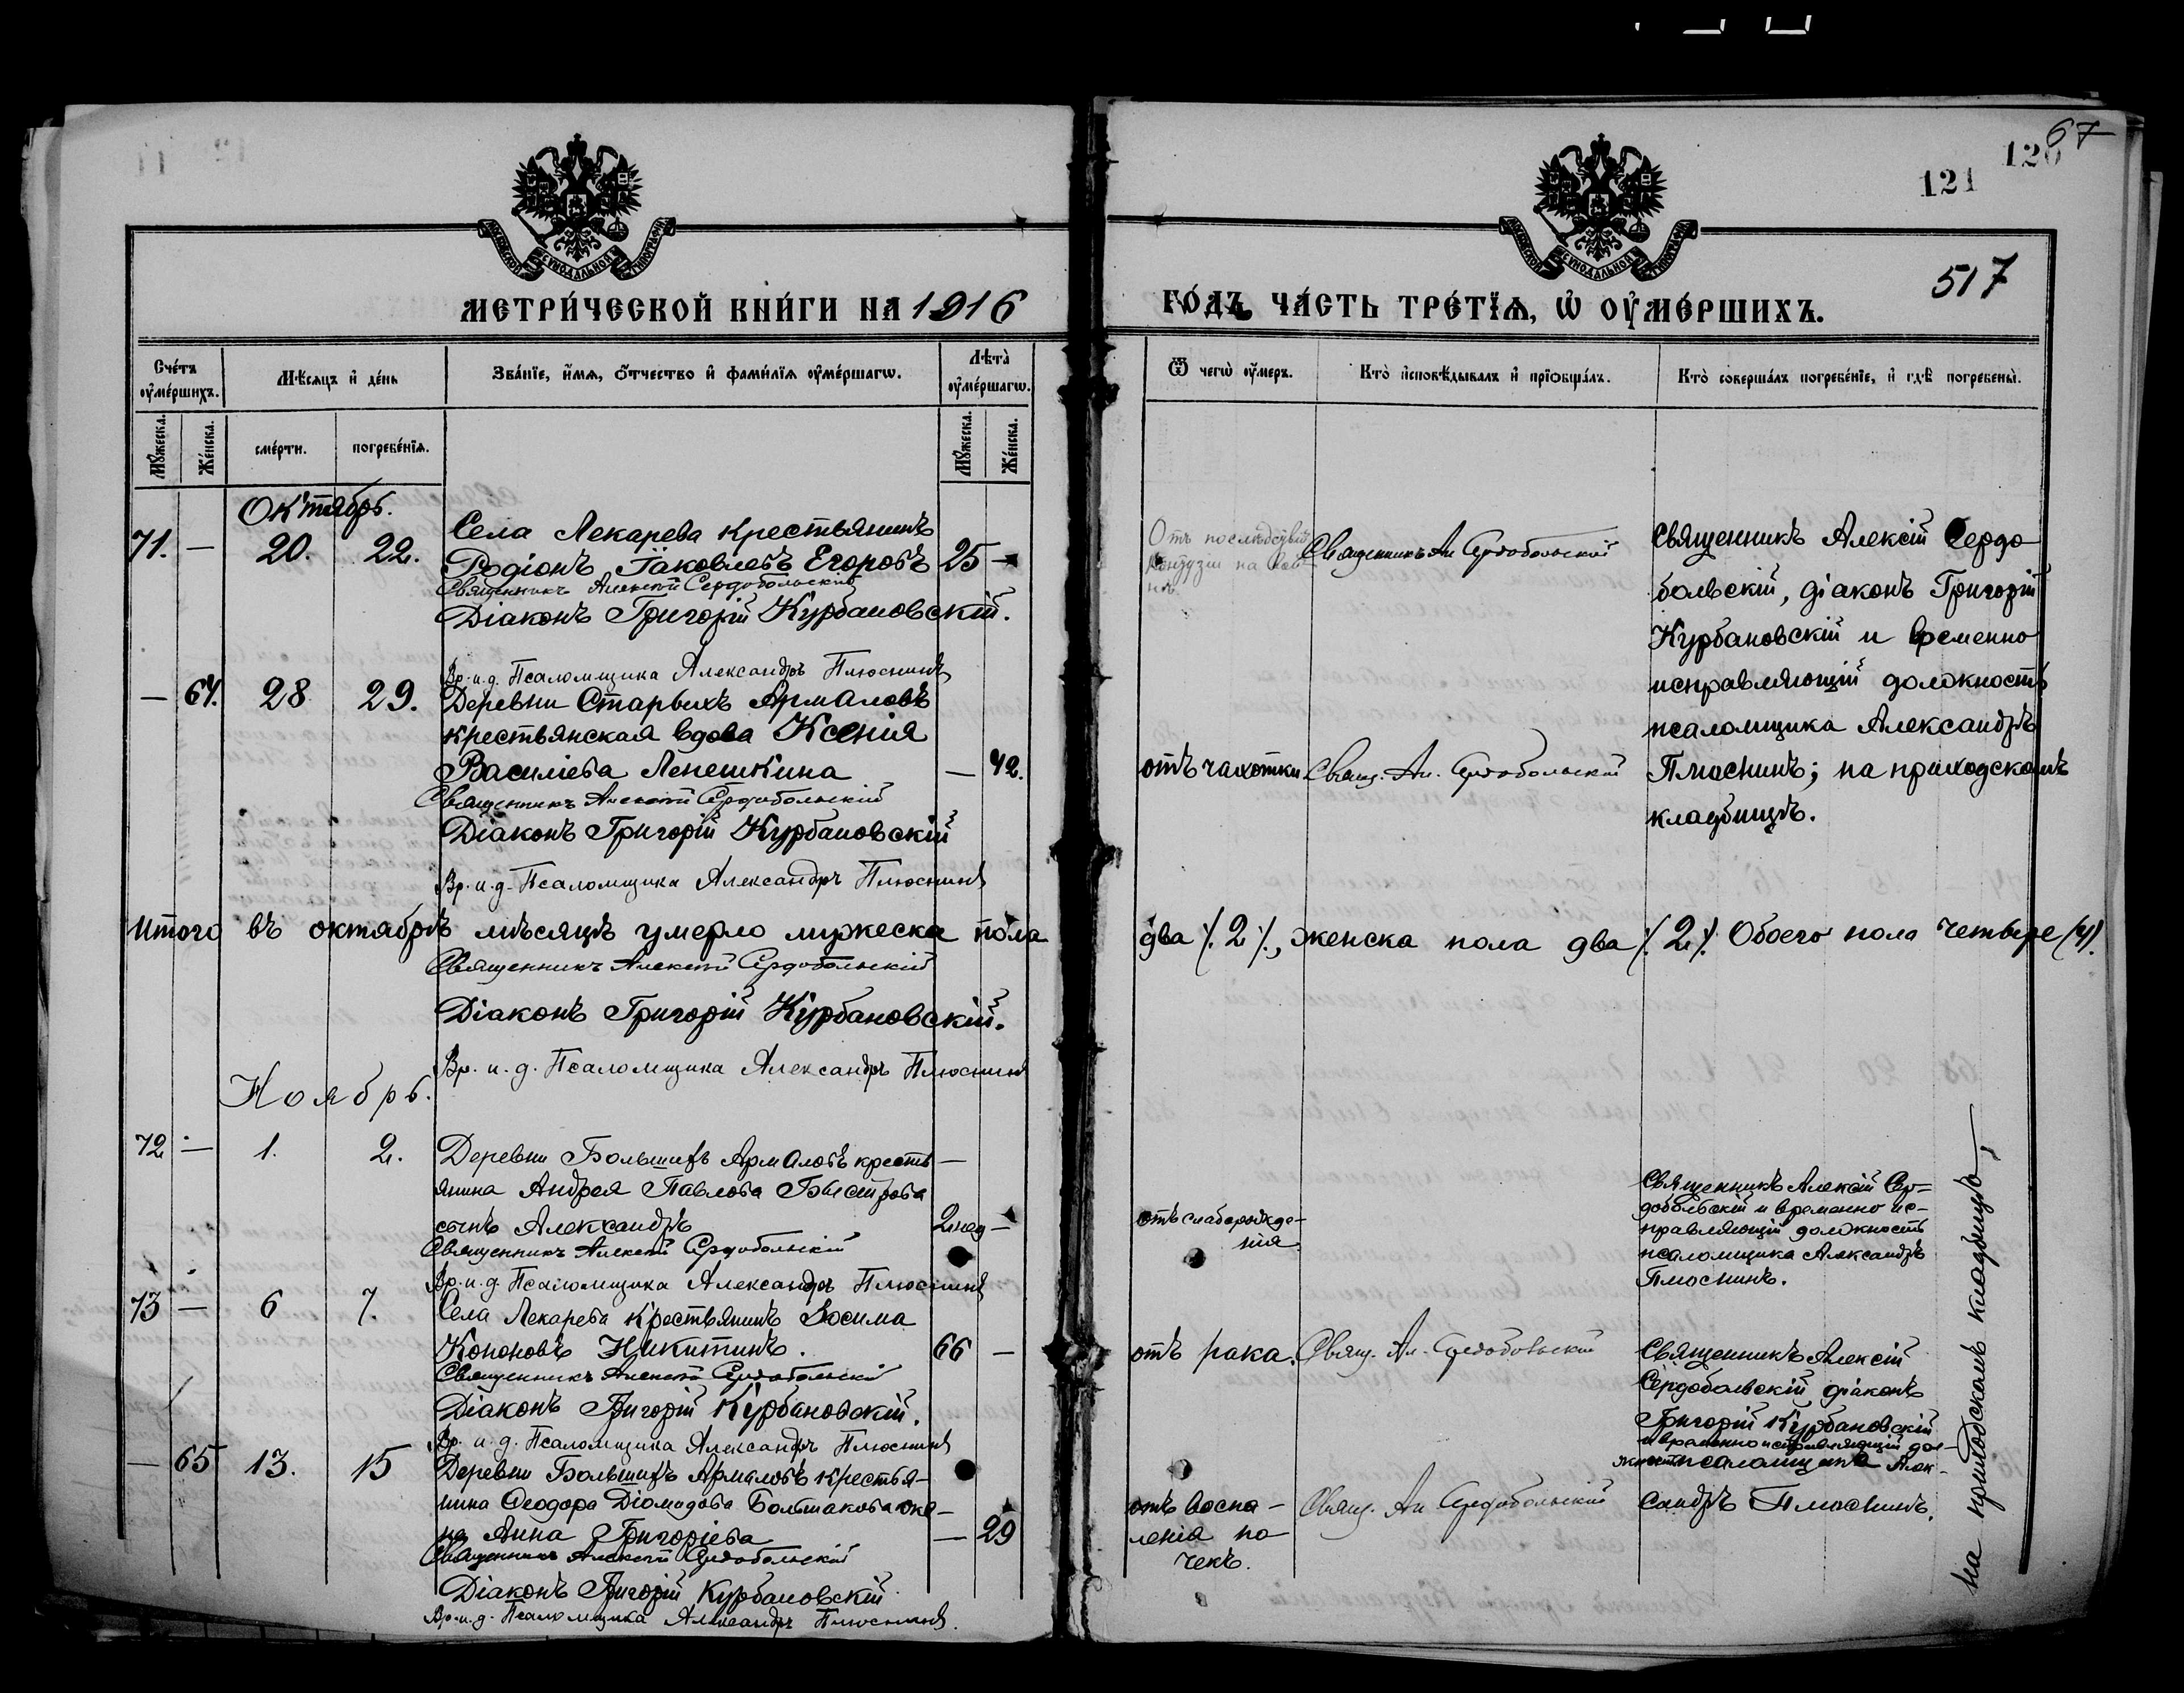 67
120
121
517
МЕТРИ́ЧЕСКОЙ КНИ́ГИ НА 1916
ГО́ДЪ ЧА́СТЬ ТРЕ́ТЇѦ, Ѡ ОУ҆МЕ́РШИХЪ.
Сче́тъ оу҆ме́ршихъ.
Мѣ́сяцъ и҆ де́нь
Зва́нїе, и҆́мѧ, ѻ҆́тчество и҆ фами́лїѧ оу҆ме́ршагѡ.
Лѣ́та оу҆ме́ршагѡ.
Ѿ чегѡ̀ оу҆́меръ.
Кто̀ и҆сповѣ́дывалъ и҆ прїѡбща́лъ.
Кто̀ соверша́лъ погребе́нїе, и҆ гдѣ̀ погребены̀.
Мꙋ́жеска.
Же́нска.
сме́рти.
погребе́нїѧ.
Мꙋ́жеска.
Же́нска.
Октябрь.
71. — 20. 22.
Села Лекарева крестьянинъ
Родіонъ Іаковлевъ Егоровъ 25 —
Священникъ Алексій Сердобольскій
Діаконъ Григорій Курбановскій.
Вр. и. д. Псаломщика Александръ Плюснинъ
Отъ послѣдствій
контузіи на вой-
нѣ.
Священникъ Ал. Сердобольскій
Священникъ Алексій Сердо
больскій, діаконъ Григорій
Курбановскій и временно
исправляющій должность
псаломщика Александръ
Плюснинъ; на приходскомъ
кладбищѣ.
— 64. 28. 29.
Деревни Старыхъ Армаловъ
крестьянская вдова Ксенія
Василіева Лепешкина — 42.
Священникъ Алексій Сердобольскій
Діаконъ Григорій Курбановскій
Вр. и. д. Псаломщика Александръ Плюснинъ
отъ чахотки
Свящ. Ал. Сердобольскій
Итого въ октябрѣ мѣсяцѣ умерло мужеска пола два /. 2 /., женска пола два /. 2 /. Обоего пола четыре (4).
Священникъ Алексій Сердобольскій
Діаконъ Григорій Курбановскій.
Вр. и. д. Псаломщика Александръ Плюснинъ
Ноябрь.
72 — 1. 2.
Деревни Большихъ Армаловъ кресть—
янина Андрея Павлова Быстрова
сынъ Александръ 2 нед —
Священникъ Алексій Сердобольскій
Вр. и. д. Псаломщика Александръ Плюснинъ
отъ слаборожде-
нія.
Священникъ Алексій Сер=
добольскій и временно ис=
правляющій должность
псаломщика Александръ
Плюснинъ.
73 — 6 7.
Села Лекарева крестьянинъ Зосима
Кононовъ Никитинъ. 66 —
Священникъ Алексій Сердобольскій
Діаконъ Григорій Курбановскій.
Вр. и. д. Псаломщика Александръ Плюснинъ
отъ рака.
Свящ. Ал. Сердобольскій
Священникъ Алексій
Сердобольскій діаконъ
Григорій Курбановскій
и временно исправляющій дол-
жность псаломщика Алек-
сандръ Плюснинъ.
— 65 13. 15
Деревни Большихъ Армаловъ крестья-
нина Ѳеодора Діомидова Большакова же-
на Анна Григоріева — 29
Священникъ Алексій Сердобольскій
Діаконъ Григорій Курбановскій
Вр. и. д. Псаломщика Александръ Плюснинъ.
отъ воспа-
ленія по-
чекъ.
Свящ. Ал Сердобольскій
на приходскомъ кладбищѣ